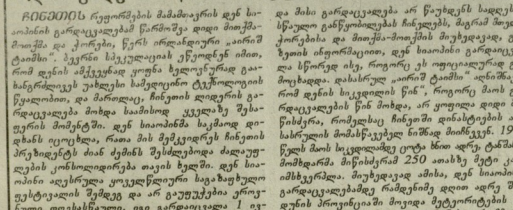 ჩინეთის რეფორმების მამამთავრის დენ სი-
აოპინის გარდაცვალებამ წარმოშვა დიდი მითქმა-
მოთქმა და ჭორები, წერს ირლანდიური „აირიშ
ტაიმსი“. ბევრი სპეკულაციას ეწეოდნენ იმით,
რომ დენის ამქვეყნად ყოფნა ხელოვნურად გაა-
ხანგრძლივეს უახლესი სამედიცინო ტექნოლოგიის
წყალობით, და მართლაც, ჩინეთის ლიდერის გა-
რდაცვალება მოხდა საამისოდ ყველაზე შესა-
ფერის მომენტში. დენ სიაოპინმა საკმაოდ დი-
დხანს იცოცხლა, რათა მის მემკვიდრეს ჩინეთის
პრეზიდენტს ძიან ძემინს შესძლებოდა ძალაუფ-
ლების კონსოლიდირება თავის ხელში. დენ სია-
ოპინი აღესრულა ყოველწლიური საგაზაფხულო
ფესტივალის შემდეგ და არ გაუფუჭებია ეროვ-
ნული დღესასწაული. იგი გარდაიცვალა 1 ივ-
და მისი გარდაცვალება არ წაუხდენს სადღეს
სწაულო განწყობილებას ჩინელებს, მაგრამ მიუ
ჭორებისა და მითქმა-მოთქმის მიუხედავად, გ
ზეთის ინფორმაციით, დენ სიაოპინი გარდაიცვ
ლა სწორედ ისე, როგორც ეს ოფიციალურად
მოცხადდა. დასასრულ „აირიშ ტაიმსი“ აღნიშნა
რომ დენის სიკვდილის წინ, როგორც მაოს გ
რდაცვალების წინ მოხდა, არ ყოფილა დიდი
წისძვრა, რომელსაც ჩინეთში დინასტიების
სასრულის მომასწავებელ ნიშნად მიიჩნევენ. 19
წელს მაოს სიკვდილამდე ცოტა ხნით ადრე, ტან
მომხდარმა მიწისძვრამ 250 ათასზე მეტი კა
იმსხვერპლა. მიუხედავად ამისა, დენ სიაოპინი
გარდაცვალებამდე რამდენიმე დღით ადრე შ
დუნის პროვინციაში მოვიდა მეტეორიტების